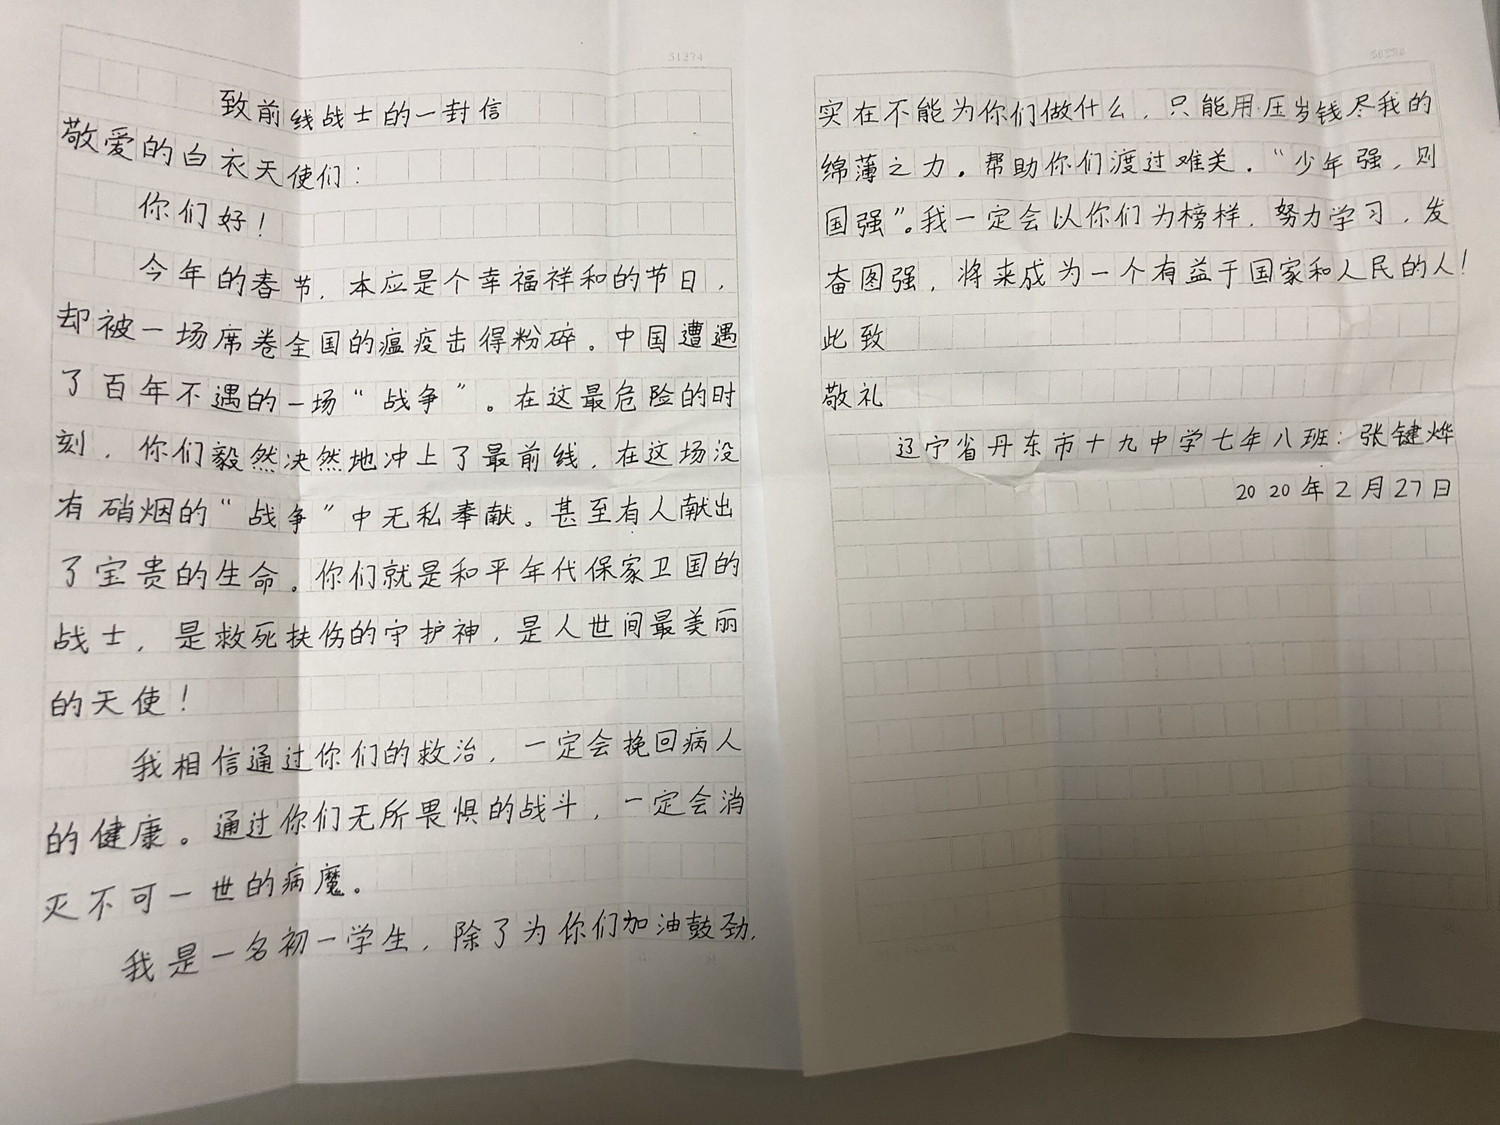 致前线战士的一封信
敬爱的白衣天使们：
你们好！
今年的春节，本应是个幸福祥和的节日，
却被一场席卷全国的瘟疫击得粉碎。中国遭遇
了百年不遇的一场“战争”。在这最危险的时
刻，你们毅然决然地冲上了最前线，在这场没
有硝烟的“战争”中无私奉献。甚至有人献出
了宝贵的生命。你们就是和平年代保家卫国的
战士，是救死扶伤的守护神，是人世间最美丽
的天使！
我相信通过你们的救治，一定会挽回病人
的健康。通过你们无所畏惧的战斗，一定会消
灭不可一世的病魔。
我是一名初一学生，除了为你们加油鼓劲，
实在不能为你们做什么，只能用压岁钱尽我的
绵薄之力。帮助你们渡过难关。“少年强，则
国强”。我一定会以你们为榜样，努力学习，发
奋图强，将来成为一个有益于国家和人民的人！
此致
敬礼
辽宁省丹东市十九中学七年八班：张键烨
2020年2月27日